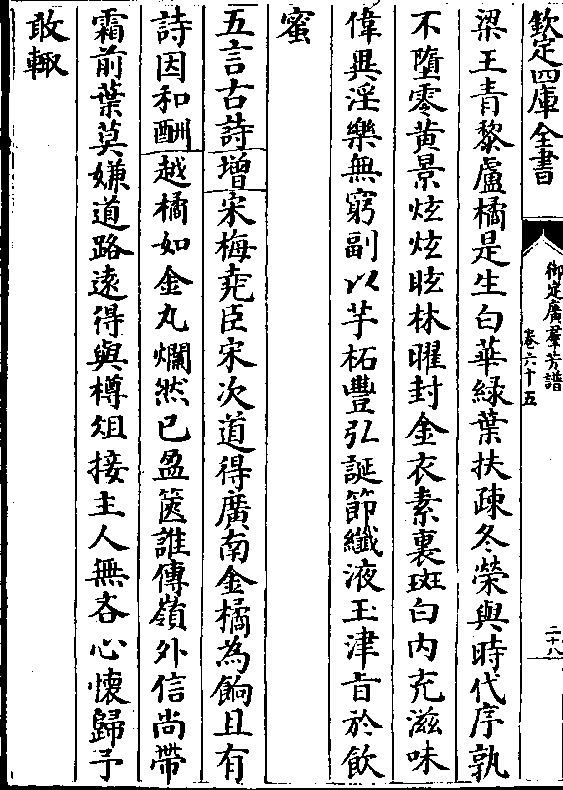 欽定四庫全書
御定廣羣芳譜
卷六十五
二十八
梁王青黎盧橘是生白華緑葉扶疎冬榮與時代序孰
不墮零黄景炫炫眩林曜封金衣素裏斑白内充滋味
偉異淫樂無窮副以芋柘豐弘誕節纖液玉津㫖於飲
蜜
五言古詩增宋梅堯臣宋次道得廣南金橘為餉且有
詩因和酬越橘如金丸爛然已盈篋誰傳嶺外信尚帶
霜前葉莫嫌道路遠得與樽俎接主人無吝心懷歸予
敢輙